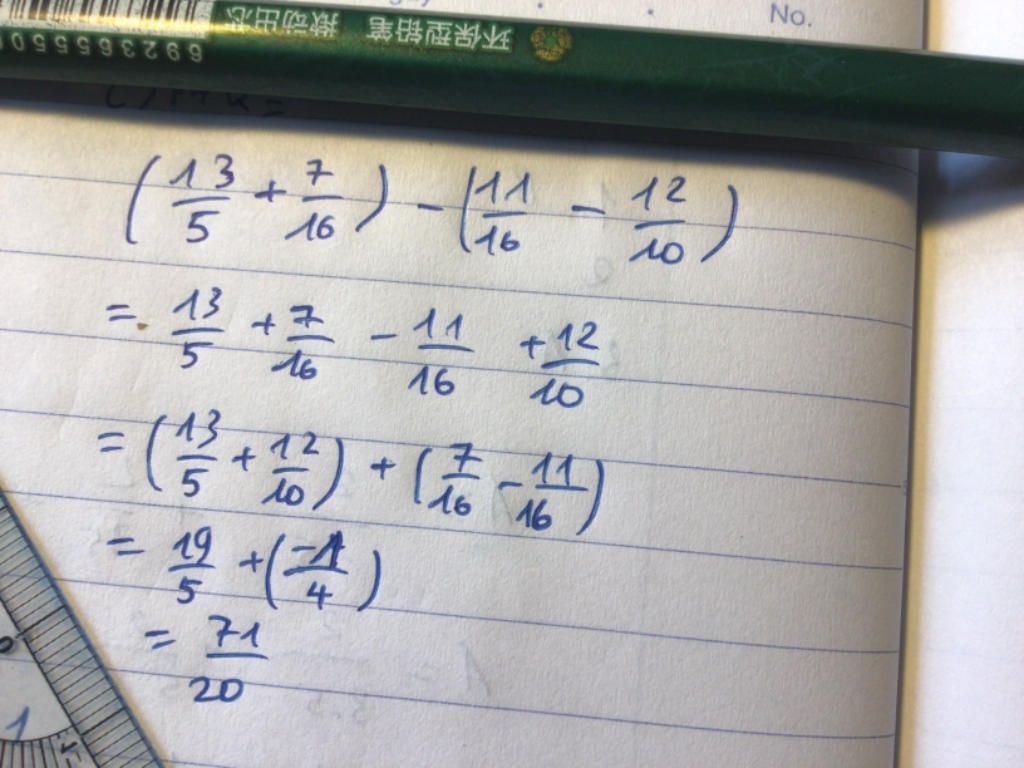 No.
6923655
环保型铅笔 揿动出芯
(13/5 + 7/16) - (11/16 - 12/10)
= 13/5 + 7/16 - 11/16 + 12/10
= (13/5 + 12/10) + (7/16 - 11/16)
= 19/5 + (-1/4)
= 71/20
1